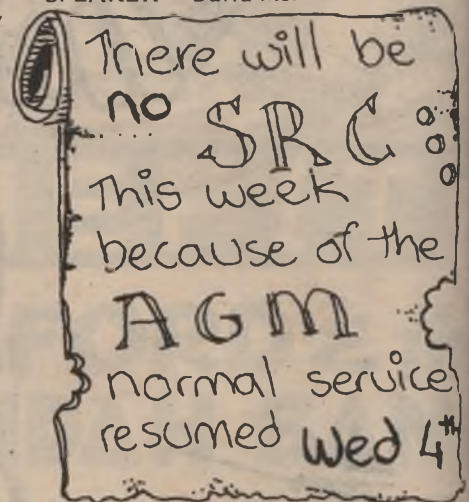 SPEAKER
There will be
no SRC
This week
because of the
AGM
normal service
resumed Wed 4th